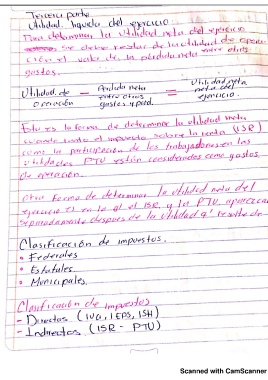 Tercera parte
Utilidad liquida del ejercicio
Para determinar la utilidad neta del ejercicio
se debe restar de la utilidad de opera-
ción el valor de la pérdida neta entre otros
gastos.
Utilidad de operación - Perdida neta entre otros gastos y prod. = Utilidad neta del ejercicio.
Esta es la forma de determinar la utilidad neta
cuando tanto el impuesto sobre la renta (ISR)
como la participación de los trabajadores en las
utilidades PTU están considerados como gastos
de operación.
Otra forma de determinar la utilidad neta del
ejercicio es en la q' el ISR y la PTU aparezca
separadamente después de la utilidad q' resulte de
Clasificación de impuestos.
• Federales
• Estatales
• Municipales.
Clasificación de impuestos
- Directos (IVA, IEPS, ISH)
- Indirectos (ISR - PTU)
Scanned with CamScanner